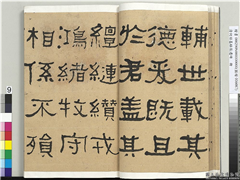 輔世載其
德爰既且
於君盖其
繵縺纘戎
鴻緒牧守
相係不殞
9